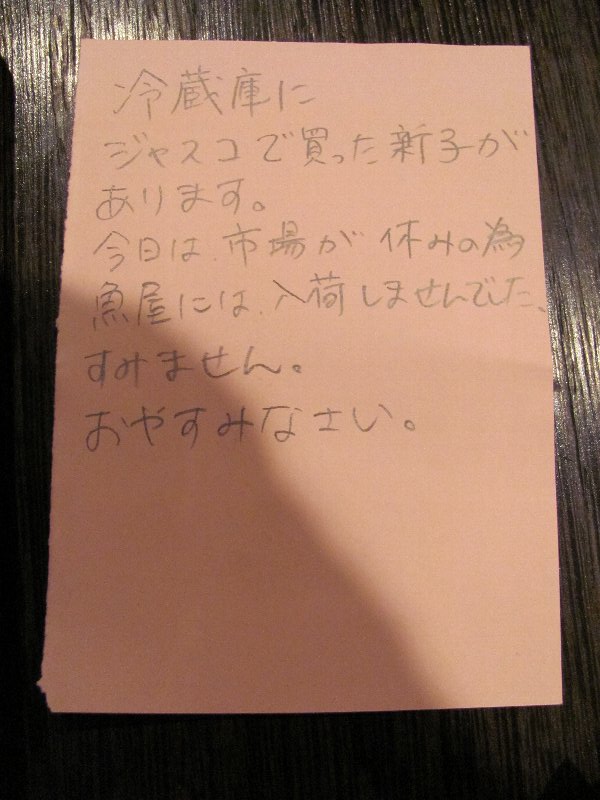 冷蔵庫に
ジャスコで買った新子が
あります。
今日は、市場が休みの為
魚屋には、入荷しませんでした、
すみません。
おやすみなさい。